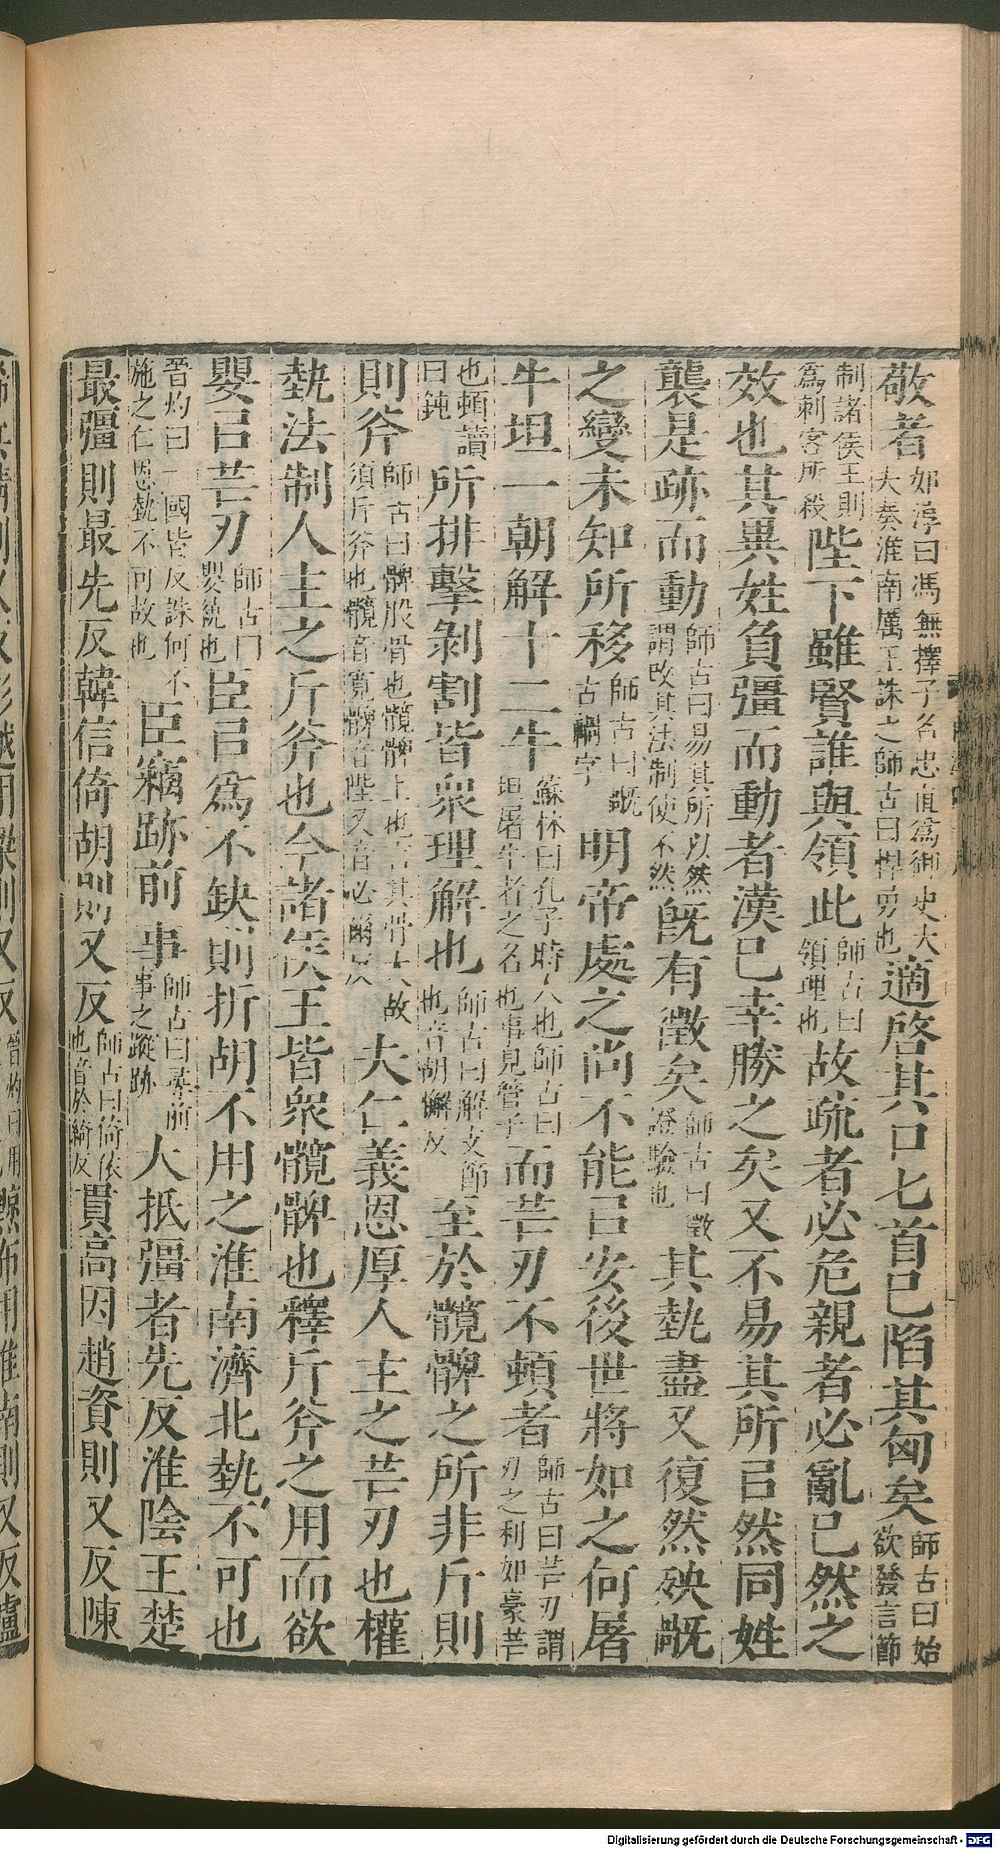 敬者如淳曰馮無擇子名忠直爲御史大夫奏淮南厲王誅之師古曰悍勇也適啓其口匕首已陷其匈矣師古曰始欲發言節
制諸侯王則爲刺客所殺陛下雖賢誰與領此師古曰領理也故疏者必危親者必亂已然之
效也其異姓負彊而動者漢已幸勝之矣又不易其所㠯然同姓
襲是跡而動師古曰易其所以然謂改其法制使不然旣有徵矣師古曰徵證驗也其埶盡又復然殃旤
之變未知所移師古曰旤古禍字明帝處之尚不能㠯安後世將如之何屠
牛坦一朝解十二牛蘇林曰孔子時人也師古曰坦屠牛者之名也事見管子而芒刃不頓者師古曰芒刃謂刃之利如豪芒
也頓讀曰鈍所排擊剝割皆衆理解也師古曰解支節也音胡懈反至於髖髀之所非斤則
則斧師古曰髀股骨也髖髀上也言其骨大故須斤斧也髖音寬髀音陛又音必爾反夫仁義恩厚人主之芒刃也權
埶法制人主之斤斧也今諸侯王皆衆髖髀也釋斤斧之用而欲
嬰㠯芒刃師古曰嬰繞也臣㠯爲不缺則折胡不用之淮南濟北埶不可也
晉灼曰二國皆反誅何不施之仁恩埶不可故也臣竊跡前事師古曰尋前事之蹤跡大抵彊者先反淮陰王楚
最彊則最先反韓信倚胡則又反師古曰倚依也音於綺反貫高因趙資則又反陳
Digitalisierung gefördert durch die Deutsche Forschungsgemeinschaft - DFG